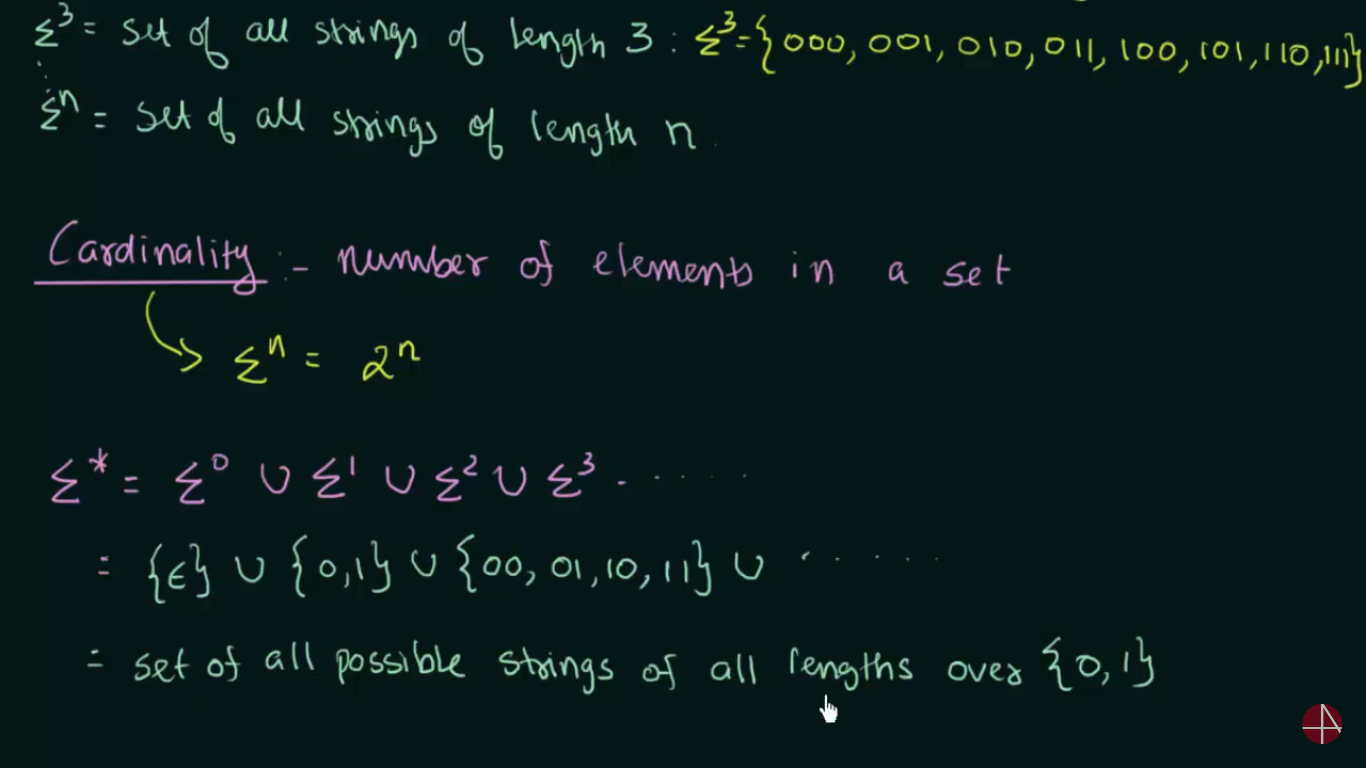 Σ³ = set of all strings of length 3 : Σ³ = {000, 001, 010, 011, 100, 101, 110, 111}
Σⁿ = set of all strings of length n
Cardinality :- number of elements in a set
Σⁿ = 2ⁿ
Σ* = Σ⁰ ∪ Σ¹ ∪ Σ² ∪ Σ³ . . . . . .
= {ϵ} ∪ {0,1} ∪ {00, 01, 10, 11} ∪ . . . . . .
= set of all possible strings of all lengths over {0,1}